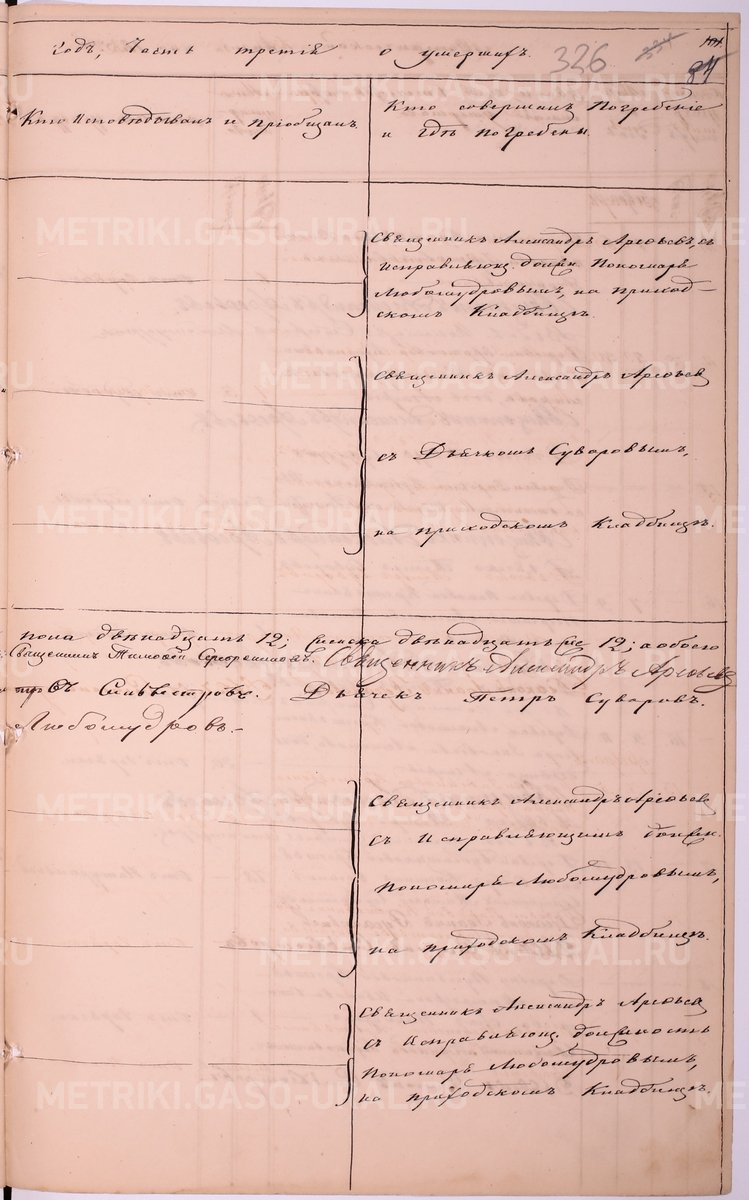 годъ, Часть третія о умершихъ. 326 334
84
Кто Исповѣдывалъ и пріобщалъ.
Кто совершалъ Погребеніе
и гдѣ погребены.
Священникъ Александръ Арефьевъ, съ
Исправляющ. должн. Пономаря
Любомудровымъ, на приход-
скомъ Кладбищѣ.
Священникъ Александръ Арефьев
съ Дьячкомъ Суворовымъ,
на приходскомъ Кладбищѣ.
пола двѣнадцать 12; женска двѣнадцать же 12; а обоего
Священникъ Тимофей Серебренниковъ. Священникъ Александръ Арефьев
Сильвестровъ. Дьячекъ Петръ Суворовъ.
Любомудровъ.
Священникъ Александръ Арефьев
съ Исправляющимъ должн.
Пономаря Любомудровымъ,
на приходскомъ Кладбищѣ.
Священникъ Александръ Арефьев
съ Исправляющ. должность
Пономаря Любомудровымъ,
на приходскомъ Кладбищѣ.
METRIKI.GASO-URAL.RU